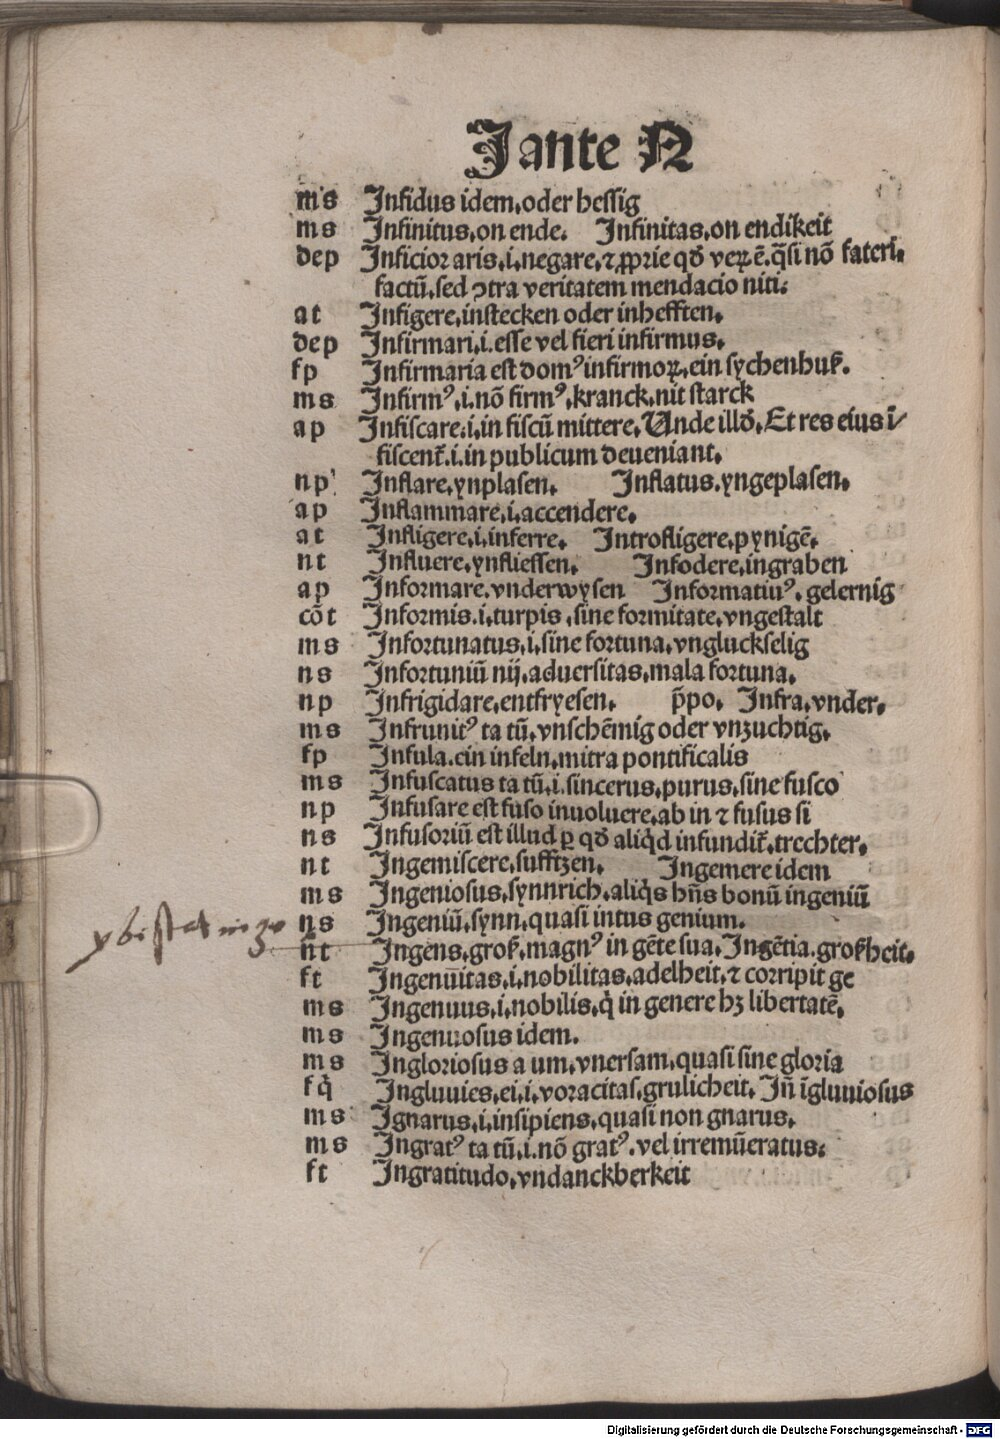 I ante N
ms Infidus idem.oder hessig
ms Infinitus.on ende. Infinitas.on endikeit
dep Inficior aris.i.negare.⁊ ꝓprie qđ veꝝ ē.q̄si nō fateri.
factū.sed ↄtra veritatem mendacio niti.
at Infigere.instecken oder inhefften.
dep Infirmari.i.esse vel fieri infirmus.
fp Infirmaria est domꝰ infirmoꝝ.ein sychenhuß.
ms Infirmꝰ.i.nō firmꝰ.kranck.nit starck
ap Infiscare.i.in fiscū mittere.Unde illđ.Et res eius ī⸗
fiscent̄.i.in publicum deueniant.
np Inflare.ynplasen. Inflatus.yngeplasen.
ap Inflammare.i.accendere.
at Infligere.i.inferre. Introfligere.pynigē.
nt Influere.ynfliessen. Infodere.ingraben
ap Informare.vnderwysen Informatiuꝰ.gelernig
cōt Informis.i.turpis.sine formitate.vngestalt
ms Infortunatus.i.sine fortuna.vngluckselig
ns Infortuniū nij.aduersitas.mala fortuna.
np Infrigidare.entfryesen. p̄po. Infra.vnder.
ms Infrunitꝰ ta tū.vnschēmig oder vnzuchtig.
fp Infula.ein infeln.mitra pontificalis
ms Infuscatus ta tū.i.sincerus.purus.sine fusco
np Infusare est fuso inuoluere.ab in ⁊ fusus si
ns Infusoriū est illud ꝑ qđ aliqd infundit̄.trechter.
nt Ingemiscere.sufftzen. Ingemere idem
ms Ingeniosus.synnrich.aliq̇s hn̄s bonū ingeniū
ns Ingeniū.synn.quasi intus genium.
nt Ingens.groß.magnꝰ in gēte sua.Ingētia.großheit.
ft Ingenūitas.i.nobilitas.adelheit.⁊ corripit ge
ms Ingenuus.i.nobilis.q̇ in genere hꝫ libertatē.
ms Ingenuosus idem.
ms Ingloriosus a um.vnersam.quasi sine gloria
fq̇ Ingluuies.ei.i.voracitas.grulicheit.Iñ īgluuiosus
ms Ignarus.i.insipiens.quasi non gnarus.
ms Ingratꝰ ta tū.i.nō gratꝰ.vel irremūeratus.
ft Ingratitudo.vndanckberkeit
Digitalisierung gefördert durch die Deutsche Forschungsgemeinschaft - DFG